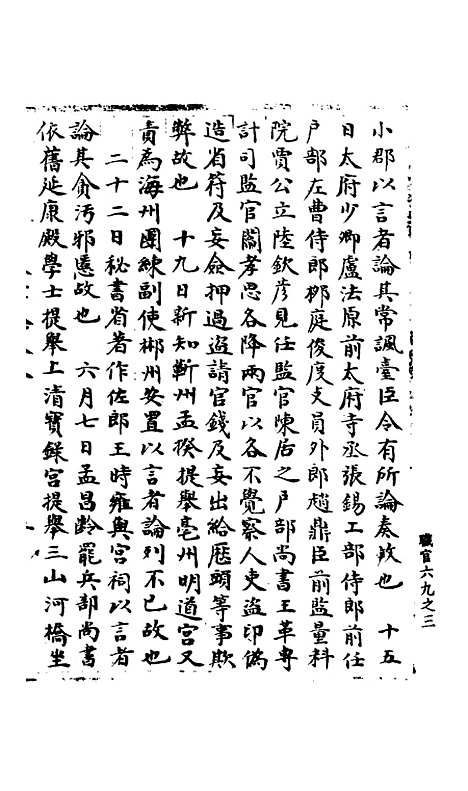 小郡以言者論其常諷臺臣令有所論奏故也　十五
日太府少卿盧法原前太府寺丞張錫工部侍郎前任
戶部左曹侍郎栁庭俊度支員外郎趙鼎臣前監量料
院賈公立陸欽彦見任監官陳居之戶部尚書王革專
計司監官閻孝思各降兩官以各不覺察人吏盜印偽
造省符及妄僉押過盜請官錢及妄出給歷頭等事欺
弊故也　十九日新知蘄州孟揆提舉亳州明道宮又
責為海州團練副使郴州安置以言者論列不已故也
二十二日秘書省著作佐郎王時雍與宮祠以言者
論其貪汚邪慝故也　六月七日孟昌齡罷兵部尚書
依舊延康殿學士提舉上清寳籙宮提舉三山河橋坐
職官六九之三